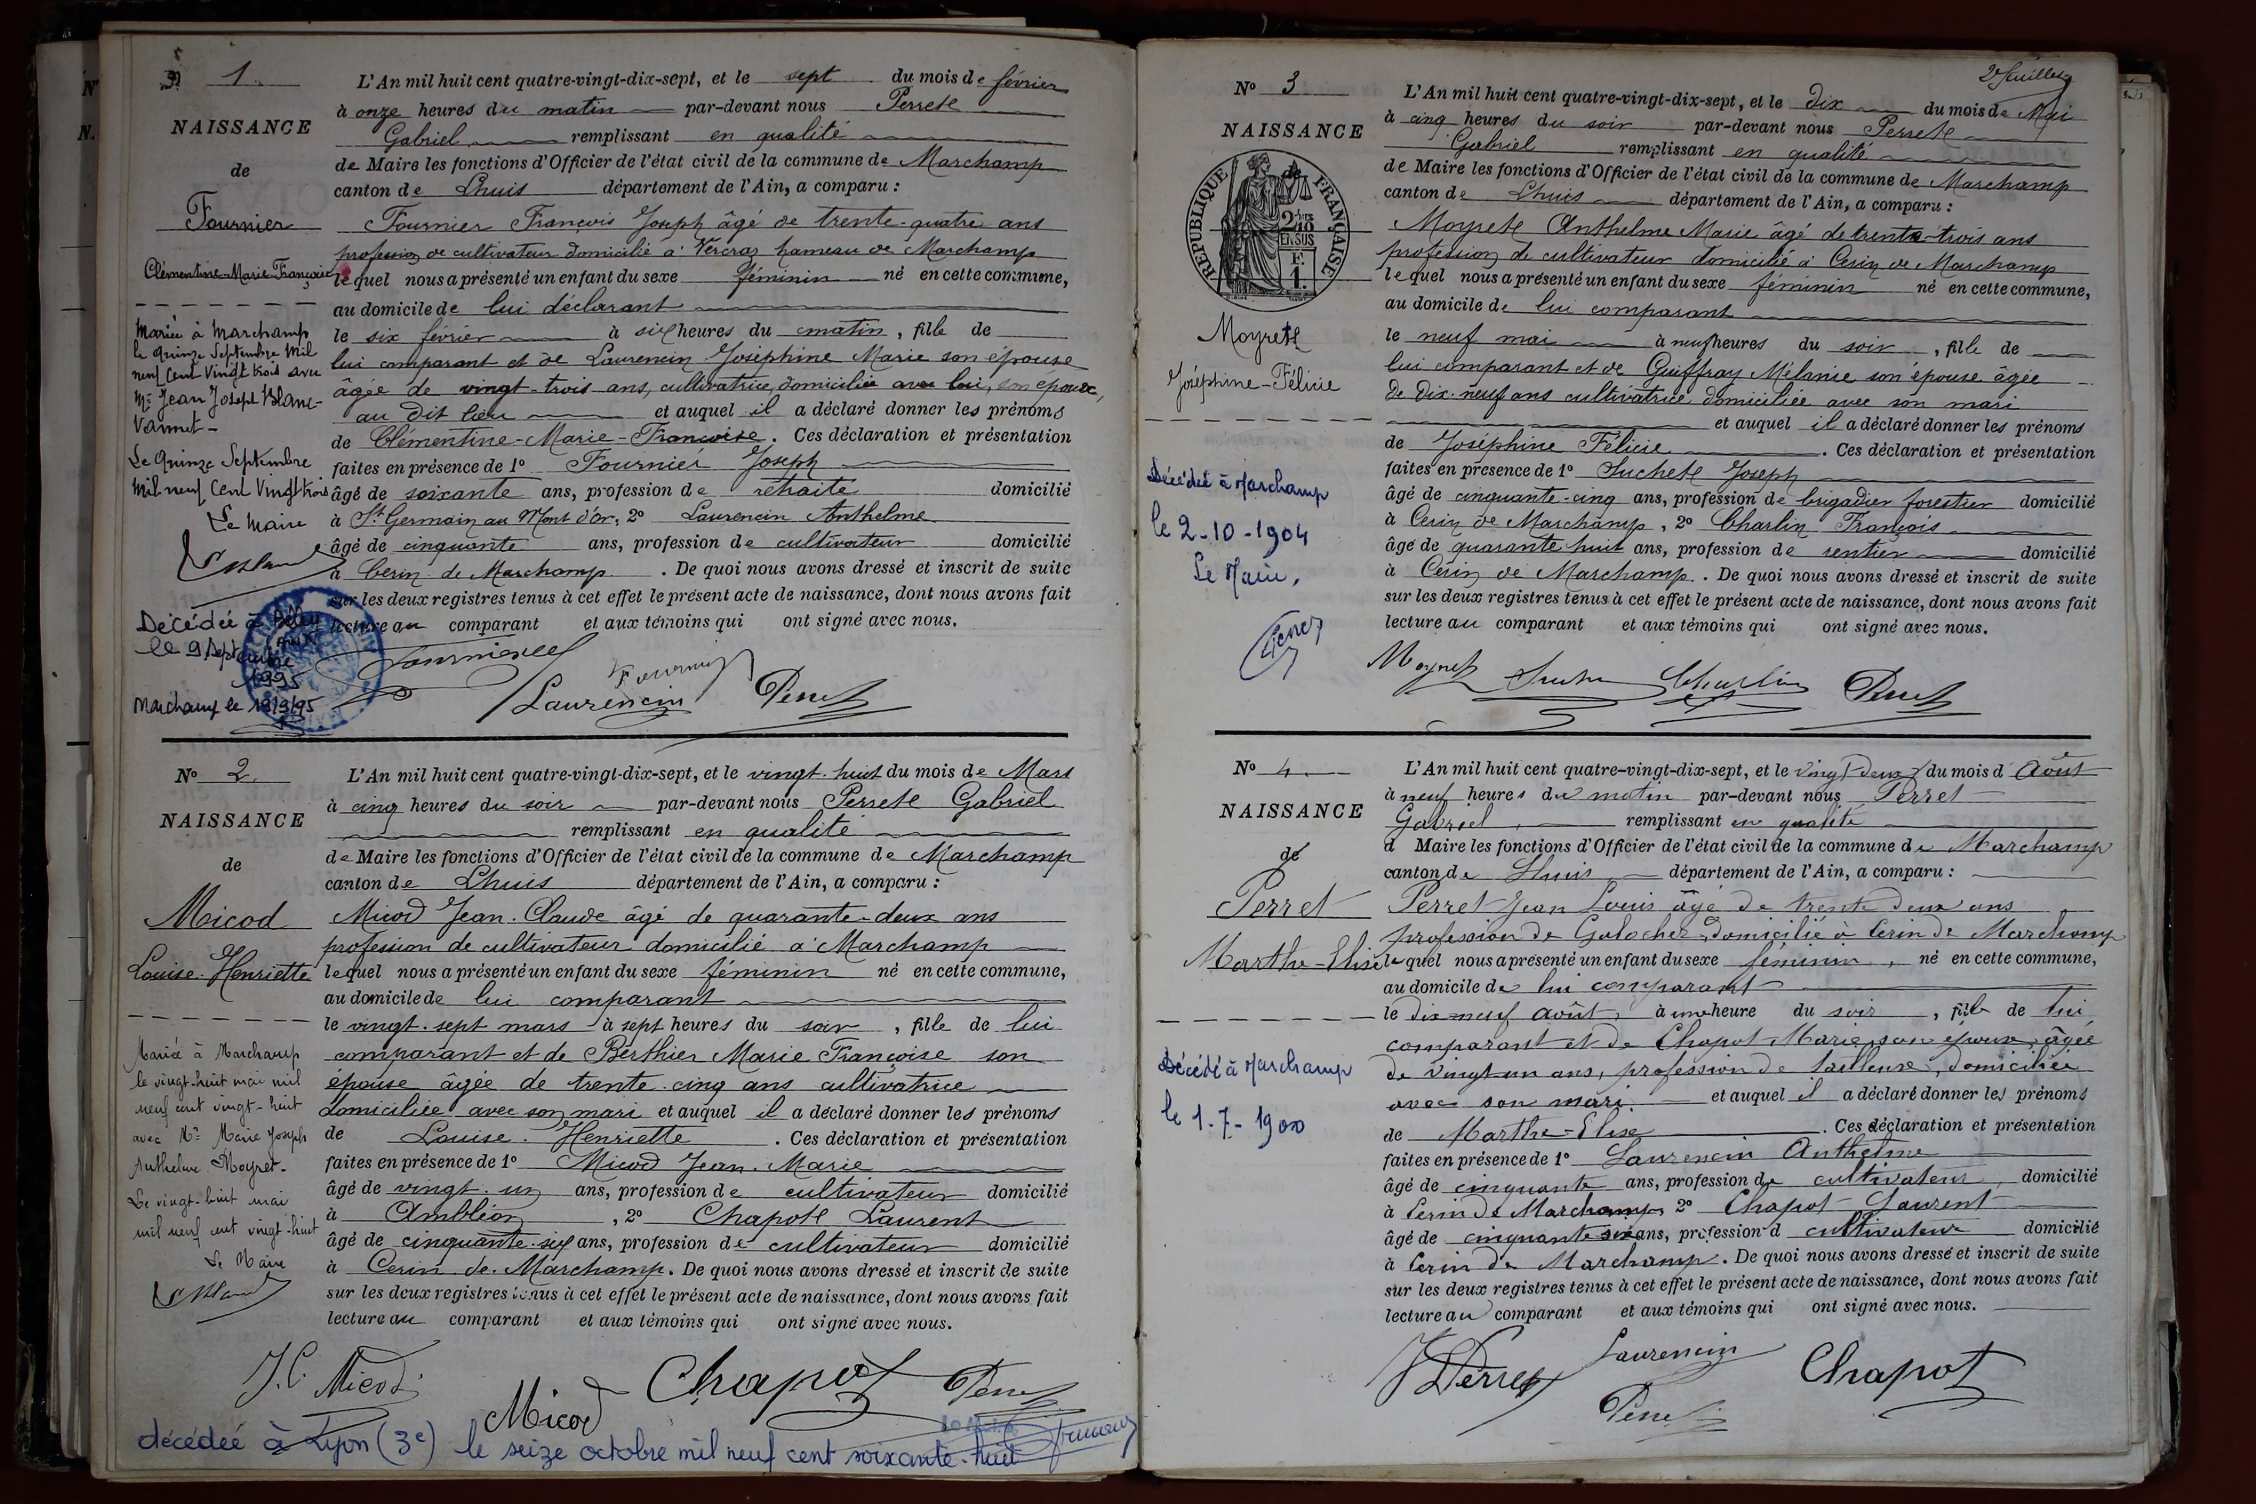 1.
NAISSANCE
de
Fournier
Clémentine-Marie-Françoise
Mariée à Marchamp
le quinze Septembre Mil
neuf Cent Vingt trois avec
Mr Jean Joseph Blanc-
Vannet-
Le Quinze Septembre
Mil neuf Cent Vingt trois
Le Maire
Décédée à Belley
(Ain)
le 9 Septembre
1995
Marchamp le 18/9/95
L'An mil huit cent quatre-vingt-dix-sept, et le sept du mois de février
à onze heures du matin par-devant nous Perret
Gabriel remplissant en qualité
de Maire les fonctions d'Officier de l'état civil de la commune de Marchamp
canton de Lhuis département de l'Ain, a comparu :
Fournier François Joseph âgé de trente-quatre ans
profession de cultivateur domicilié à Vercraz hameau de Marchamp
lequel nous a présenté un enfant du sexe féminin né en cette commune,
au domicile de lui déclarant
le six février à six heures du matin, fille de
lui comparant et de Laurencin Joséphine Marie son épouse
âgée de vingt-trois ans, cultivatrice domiciliée avec lui, son epoux,
au dit lieu et auquel il a déclaré donner les prénoms
de Clémentine-Marie-Françoise. Ces déclaration et présentation
faites en présence de 1° Fournier Joseph
âgé de soixante ans, profession de retraité domicilié
à St Germain au Mont d'or, 2° Laurencin Anthelme
âgé de cinquante ans, profession de cultivateur domicilié
à Cerin de Marchamp. De quoi nous avons dressé et inscrit de suite
sur les deux registres tenus à cet effet le présent acte de naissance, dont nous avons fait
lecture au comparant et aux témoins qui ont signé avec nous.
Fournier
Laurencin Perret
N° 2.
NAISSANCE
de
Micod
Louise-Henriette
Mariée à Marchamp
le vingt-huit mai mil
neuf cent vingt-huit
avec Mr Marie Joseph
Anthelme Moyret-
Le vingt-huit mai
mil neuf cent vingt-huit
Le Maire
L'An mil huit cent quatre-vingt-dix-sept, et le vingt-huit du mois de Mars
à cinq heures du soir par-devant nous Perret Gabriel
remplissant en qualité
de Maire les fonctions d'Officier de l'état civil de la commune de Marchamp
canton de Lhuis département de l'Ain, a comparu :
Micod Jean-Claude âgé de quarante-deux ans
profession de cultivateur domicilié à Marchamp
lequel nous a présenté un enfant du sexe féminin né en cette commune,
au domicile de lui comparant
le vingt-sept mars à sept heures du soir, fille de lui
comparant et de Berthier Marie Françoise son
épouse âgée de trente-cinq ans cultivatrice
domiciliée avec son mari et auquel il a déclaré donner les prénoms
de Louise-Henriette. Ces déclaration et présentation
faites en présence de 1° Micod Jean-Marie
âgé de vingt-un ans, profession de cultivateur domicilié
à Ambléon, 2° Chapot Laurent
âgé de cinquante-six ans, profession de cultivateur domicilié
à Cerin de Marchamp. De quoi nous avons dressé et inscrit de suite
sur les deux registres tenus à cet effet le présent acte de naissance, dont nous avons fait
lecture au comparant et aux témoins qui ont signé avec nous.
J.C. Micod Micod Chapot Perret
décédée à Lyon (3e) le seize octobre mil neuf cent soixante-huit
2e feuillet
N° 3
NAISSANCE
de
RÉPUBLIQUE FRANÇAISE
Moyret
Joséphine-Félicie
Décédée à Marchamp
le 2-10-1904
Le Maire,
L'An mil huit cent quatre-vingt-dix-sept, et le dix du mois de Mai
à cinq heures du soir par-devant nous Perret
Gabriel remplissant en qualité
de Maire les fonctions d'Officier de l'état civil de la commune de Marchamp
canton de Lhuis département de l'Ain, a comparu :
Moyret Anthelme Marie âgé de trente-trois ans
profession de cultivateur domicilié à Cerin de Marchamp
lequel nous a présenté un enfant du sexe féminin né en cette commune,
au domicile de lui comparant
le neuf mai à neuf heures du soir, fille de
lui comparant et de Guiffray Mélanie son épouse âgée
de dix-neuf ans cultivatrice domiciliée avec son mari
et auquel il a déclaré donner les prénoms
de Joséphine Félicie. Ces déclaration et présentation
faites en présence de 1° Suchet Joseph
âgé de cinquante-cinq ans, profession de brigadier forestier domicilié
à Cerin de Marchamp, 2° Charlin François
âgé de quarante huit ans, profession de rentier domicilié
à Cerin de Marchamp. De quoi nous avons dressé et inscrit de suite
sur les deux registres tenus à cet effet le présent acte de naissance, dont nous avons fait
lecture au comparant et aux témoins qui ont signé avec nous.
Moyret Charlin Perret
N° 4.
NAISSANCE
de
Perret
Marthe-Elise
Décédé à Marchamp
le 1-7-1900
L'An mil huit cent quatre-vingt-dix-sept, et le vingt-deux du mois d Août
à neuf heures du matin par-devant nous Perret
Gabriel remplissant en qualité
d Maire les fonctions d'Officier de l'état civil de la commune de Marchamp
canton de Lhuis département de l'Ain, a comparu :
Perret Jean Louis âgé de trente deux ans
profession de Galocher domicilié à Cerin de Marchamp
lequel nous a présenté un enfant du sexe féminin, né en cette commune,
au domicile de lui comparant
le dix-neuf août, à une heure du soir, fille de lui
comparant et de Chapot Marie, son épouse, âgée
de vingt-un ans, profession de tailleuse, domiciliée
avec son mari. et auquel il a déclaré donner les prénoms
de Marthe-Elise. Ces déclaration et présentation
faites en présence de 1° Laurencin Anthelme
âgé de cinquante ans, profession de cultivateur, domicilié
à Cerin de Marchamp 2° Chapot Laurent
âgé de cinquante six ans, profession d cultivateur domicilié
à Cerin de Marchamp. De quoi nous avons dressé et inscrit de suite
sur les deux registres tenus à cet effet le présent acte de naissance, dont nous avons fait
lecture au comparant et aux témoins qui ont signé avec nous.
Perret Laurencin Chapot
Perret